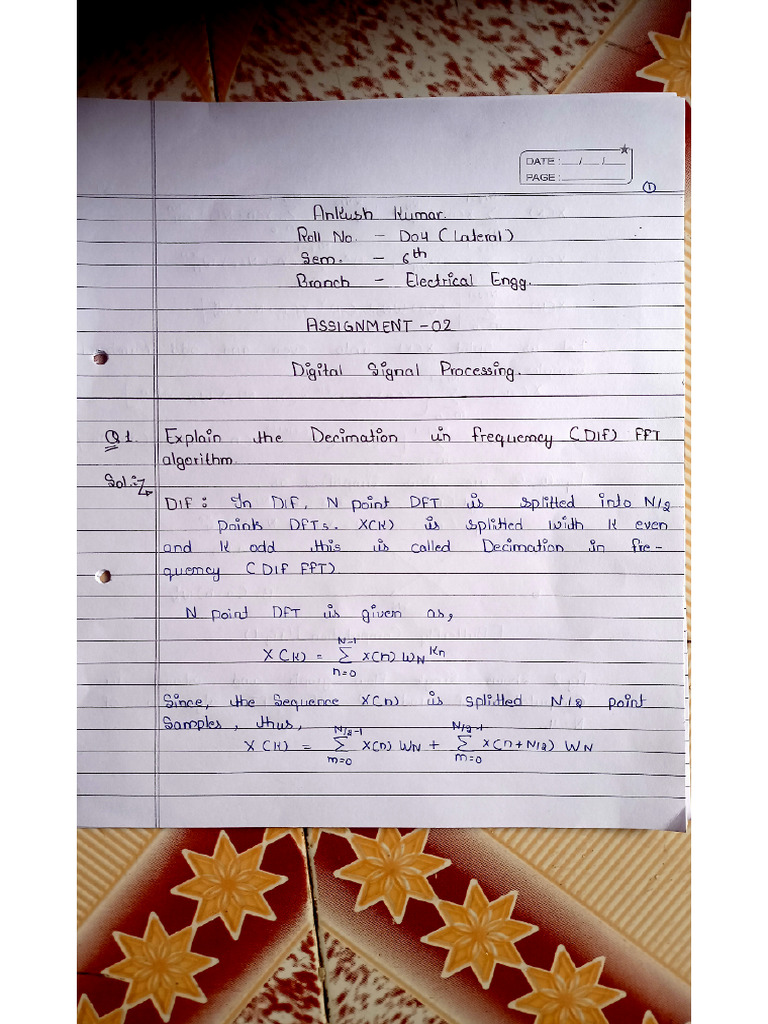 DATE : __/__/__
PAGE : ______
1
Ankush Kumar.
Roll No. - D04 (Lateral)
Sem. - 6th
Branch - Electrical Engg.
ASSIGNMENT - 02
Digital Signal Processing.
Q1. Explain the Decimation in frequency (DIF) FFT
algorithm.
Sol:-
DIF : In DIF, N point DFT is splitted into N/2
points DFTs. X(K) is splitted with K even
and K odd this is called Decimation in fre-
quency (DIF FFT).
N point DFT is given as,
X(K) = Σ_{n=0}^{N-1} x(n) W_N^{Kn}
Since, the Sequence x(n) is splitted N/2 point
Samples, thus,
X(K) = Σ_{m=0}^{N/2-1} x(n) W_N + Σ_{m=0}^{N/2-1} x(n+N/2) W_N